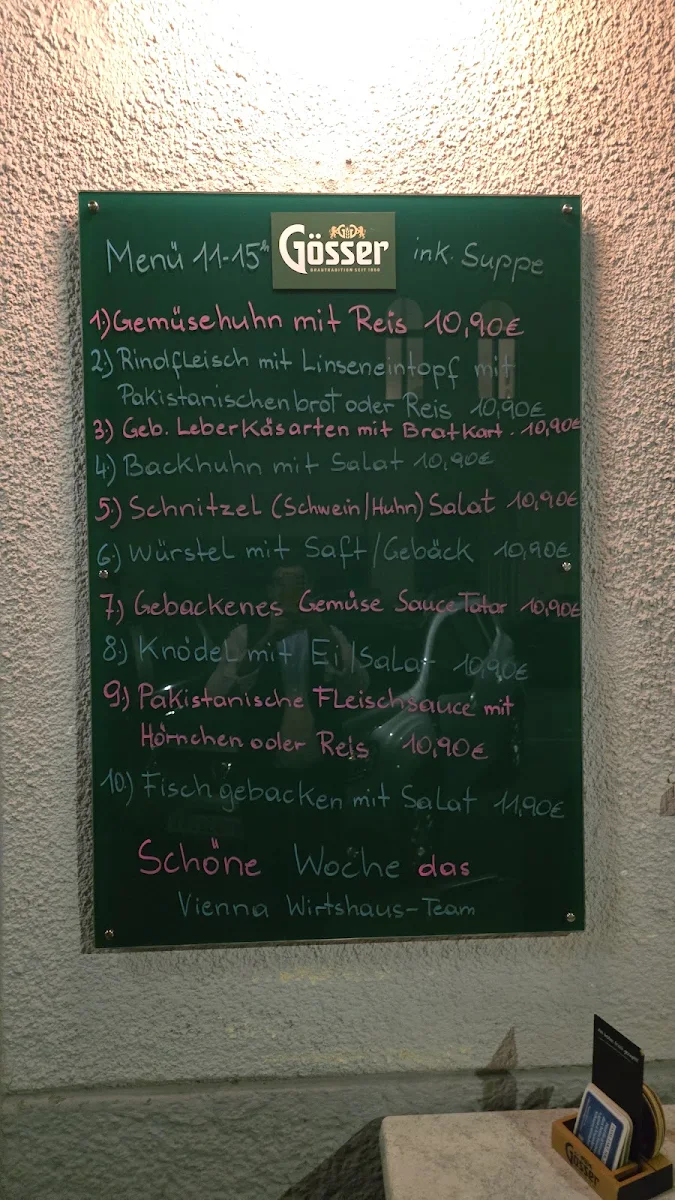 Menü 11-15h
GÖSSER
BRAUTRADITION SEIT 1860
ink. Suppe
1.) Gemüsehuhn mit Reis 10,90€
2.) Rindfleisch mit Linseneintopf mit
Pakistanischenbrot oder Reis 10,90€
3.) Geb. Leberkäsarten mit Bratkart. 10,90€
4.) Backhuhn mit Salat 10,90€
5.) Schnitzel (Schwein/Huhn) Salat 10,90€
6.) Würstel mit Saft/Gebäck 10,90€
7.) Gebackenes Gemüse Sauce Tatar 10,90€
8.) Knödel mit Ei/Salat 10,90€
9.) Pakistanische Fleischsauce mit
Hörnchen oder Reis 10,90€
10.) Fisch gebacken mit Salat 11,90€
Schöne Woche das
Vienna Wirtshaus-Team
Gösser